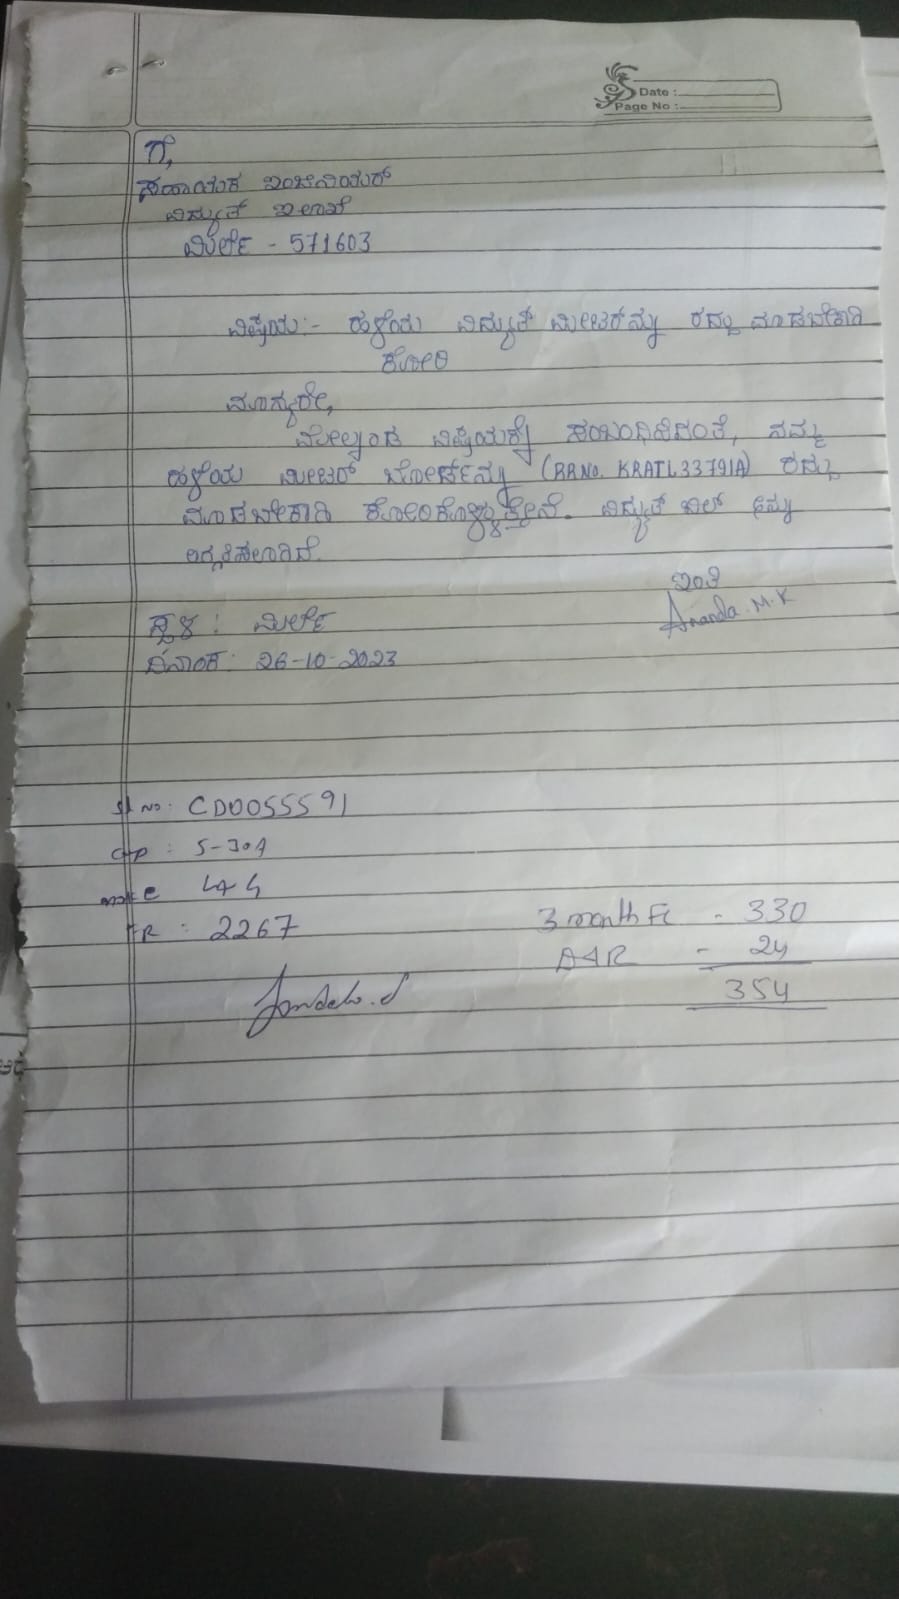 Date :
Page No :
ಗೆ,
ಸಹಾಯಕ ಇಂಜಿನಿಯರ್
ವಿದ್ಯುತ್ ಇಲಾಖೆ
ಮಿರ್ಲೆ - 571603
ವಿಷಯ:- ಹಳೆಯ ವಿದ್ಯುತ್ ಮೀಟರ್‌ನ್ನು ರದ್ದು ಮಾಡಬೇಕಾಗಿ
ಕೋರಿ
ಮಾನ್ಯರೇ,
ಮೇಲ್ಕಂಡ ವಿಷಯಕ್ಕೆ ಸಂಬಂಧಿಸಿದಂತೆ, ನಮ್ಮ
ಹಳೆಯ ಮೀಟರ್ ಬೋರ್ಡನ್ನು (RRNo. KRATL33791A) ರದ್ದು
ಮಾಡಬೇಕಾಗಿ ಕೋರಿಕೊಳ್ಳುತ್ತೇನೆ. ವಿದ್ಯುತ್ ಬಿಲ್ ನ್ನು
ಲಗ್ಗತಿಸಲಾಗಿದೆ.
ಇಂತಿ
Ananda.M.K
ಸ್ಥಳ : ಮಿರ್ಲೆ
ದಿನಾಂಕ: 26-10-2023
Sl No: CD0055591
cap : 5-30A
make L&G
FR : 2267
3 month Fc - 330
D&R - 24
354